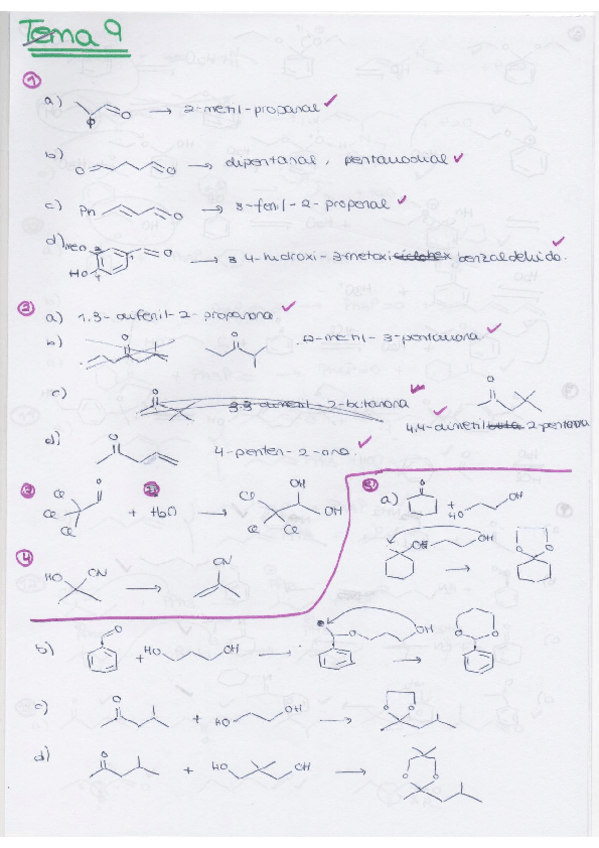 Tema 9
1
a) O → 2-metil-propanal
b) O O → dipentanal, pentanodial
c) Ph O → 3-fenil-2-propenal
d) O HO → 4-hidroxi-3-metoxi benzaldehido.
2
a) 1,3-difenil-2-propanona
b) O O 2-metil-3-pentanona
c) O 3,3-dimetil-2-butanona O
4,4-dimetil 2-pentanona
d) O 4-penten-2-ona
3 Cl Cl Cl O + H2O → Cl Cl Cl OH OH
5
a) O + HO OH
OH → O O
4
HO CN → CN
b) O + HO OH → O OH → O O
c) O + HO OH → O O
d) O + HO OH → O O